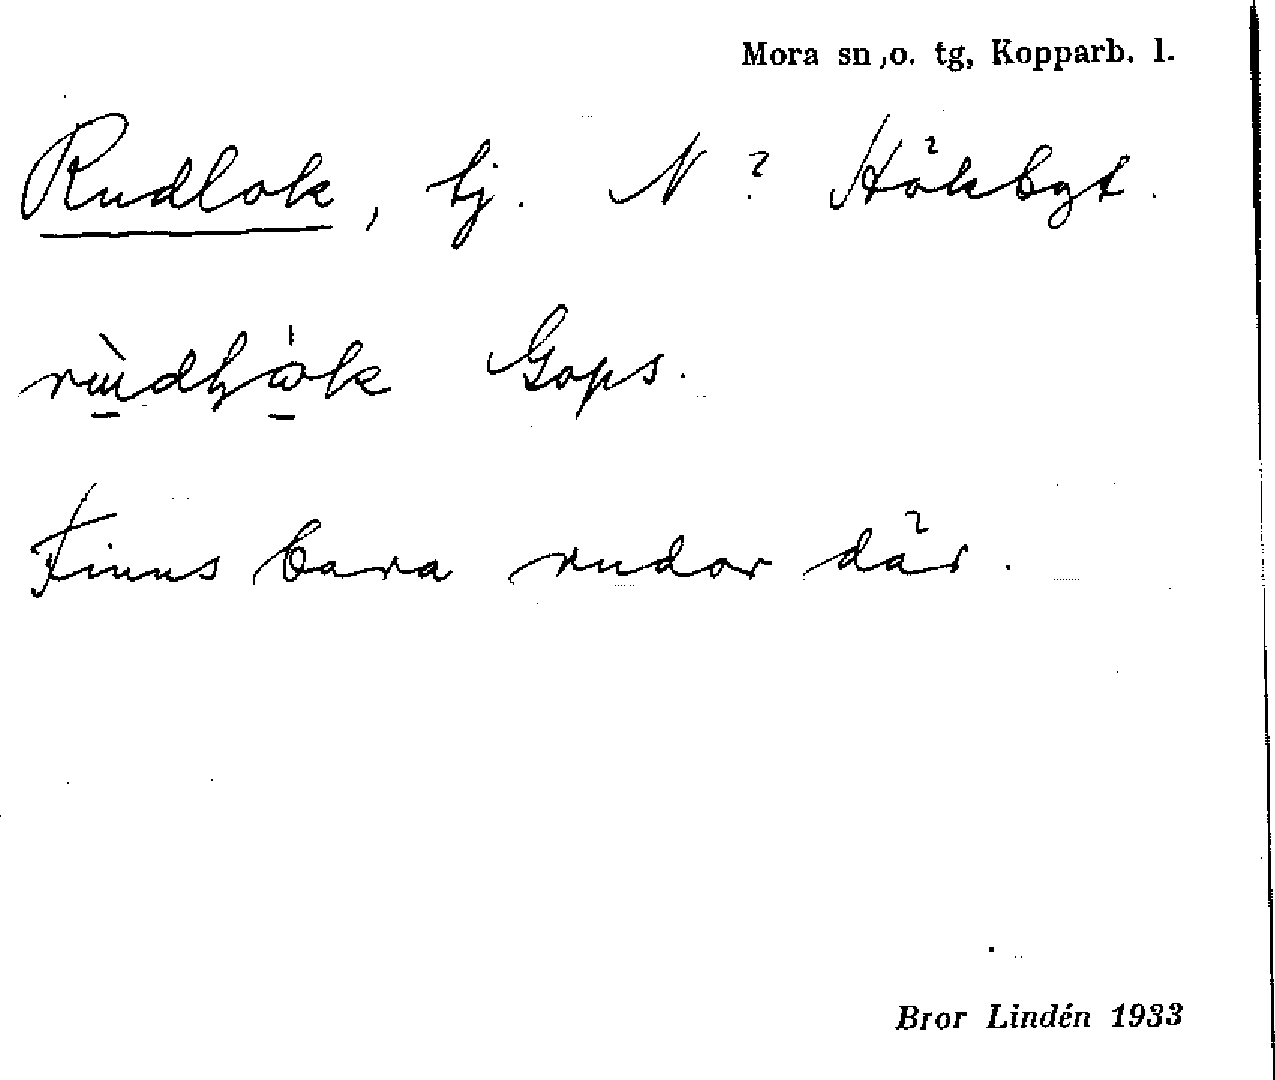 Mora sn, o. tg, Kopparb. l.
Rudlok, tj. N ? Hökbgt.
Gops.
Finns bara rudor där.
Bror Lindén 1933